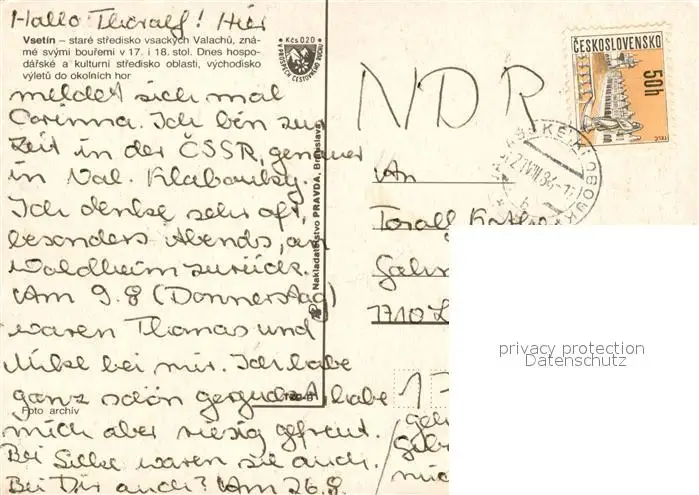 Hallo Thoralf! Hier
Vsetín – staré středisko vsackých Valachů, zná-
mé svými bouřemi v 17. i 18. stol. Dnes hospo-
dářské a kulturní středisko oblasti, východisko
výletů do okolních hor
• Kčs 0,20 •
meldet sich mal
Corinna. Ich bin zur
Zeit in der ČSSR, genauer
in Val. Klobouky.
Ich denke sehr oft,
besonders Abends, an
Waldheim zurück.
Am 9.8 (Donnerstag)
waren Thomas und
Mike bei mir. Ich habe
ganz schön geguckt, habe
Foto archív
mich aber riesig gefreut.
Bei Silke waren sie auch.
Bei Dir auch? Am 26.8.
Nakladatelstvo PRAVDA, Bratislava
NDR
ČESKOSLOVENSKO
50h
TELČ
An
Toralf
1710
17
mich
privacy protection
Datenschutz